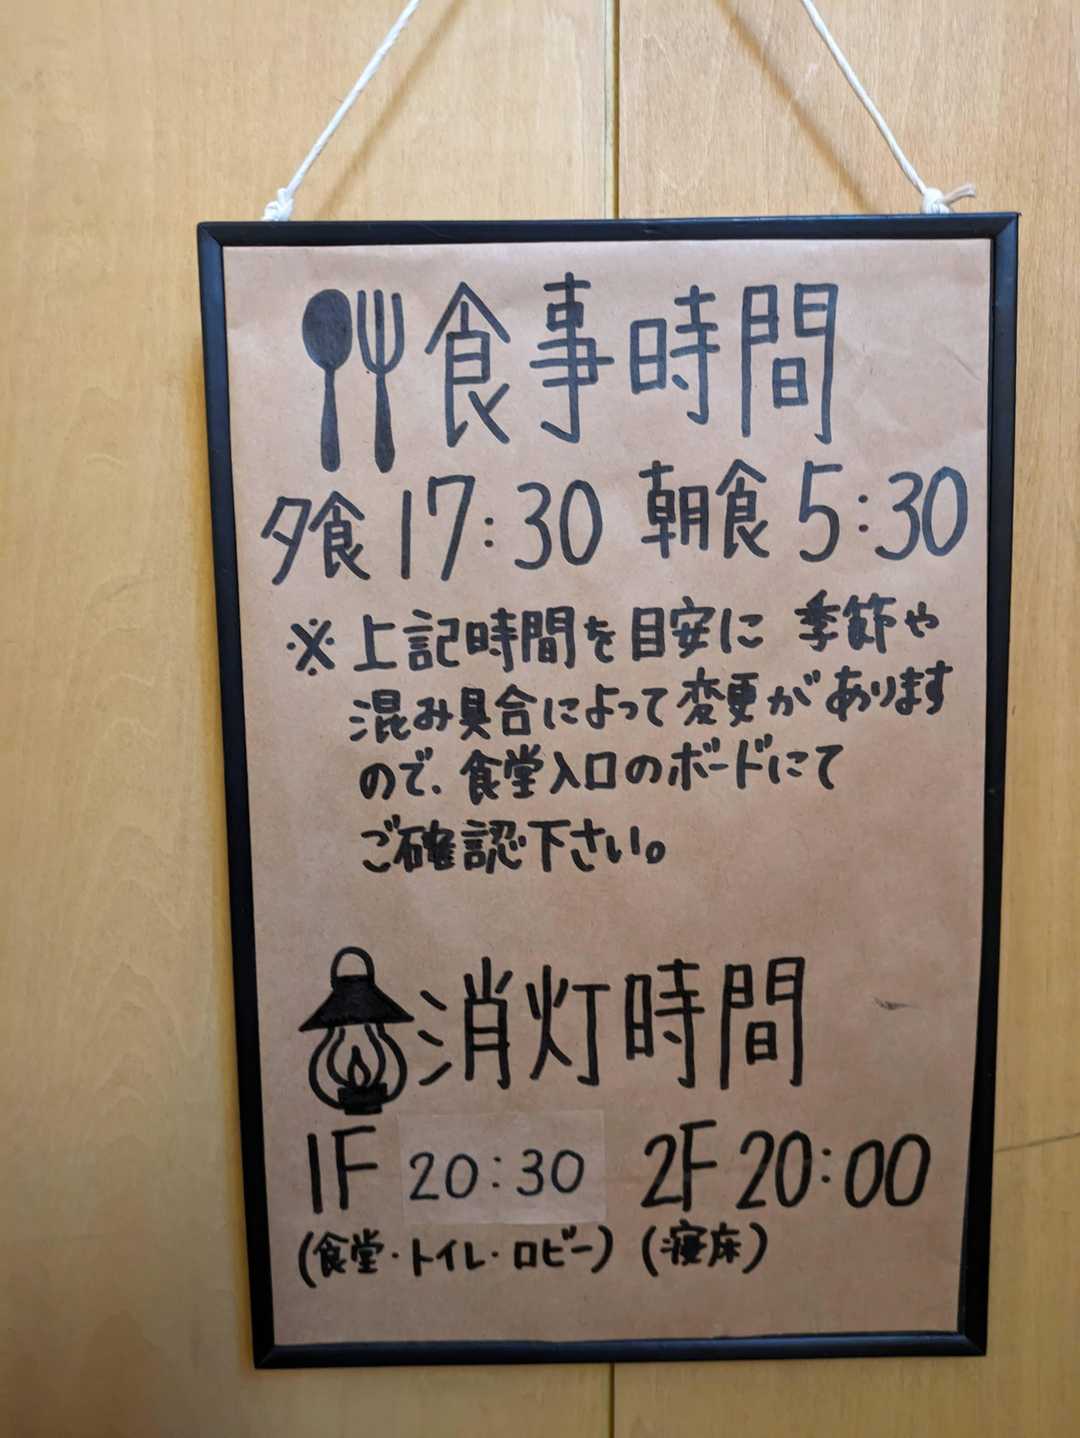 食事時間
夕食 17:30 朝食 5:30
※上記時間を目安に 季節や
混み具合によって変更があります
ので、食堂入口のボードにて
ご確認下さい。
消灯時間
1F 20:30 2F 20:00
(食堂・トイレ・ロビー) (寝床)